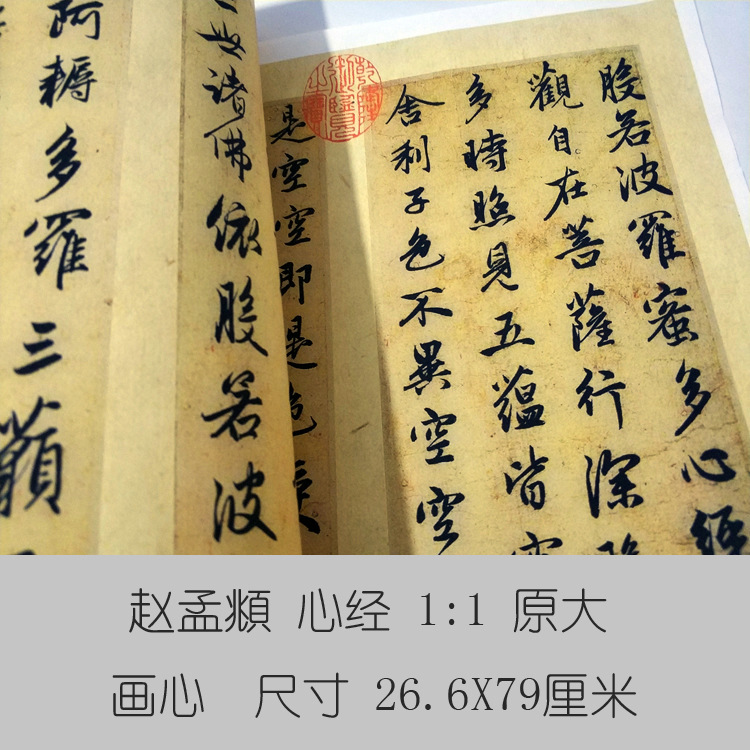 般若波羅蜜多心經
觀自在菩薩行深般
多時照見五蘊皆空
舍利子色不異空空
是空空即是色受
乾隆御覽之寶
三世諸佛依般若波
阿耨多羅三藐
赵孟頫 心经 1:1 原大
画心 尺寸 26.6X79厘米